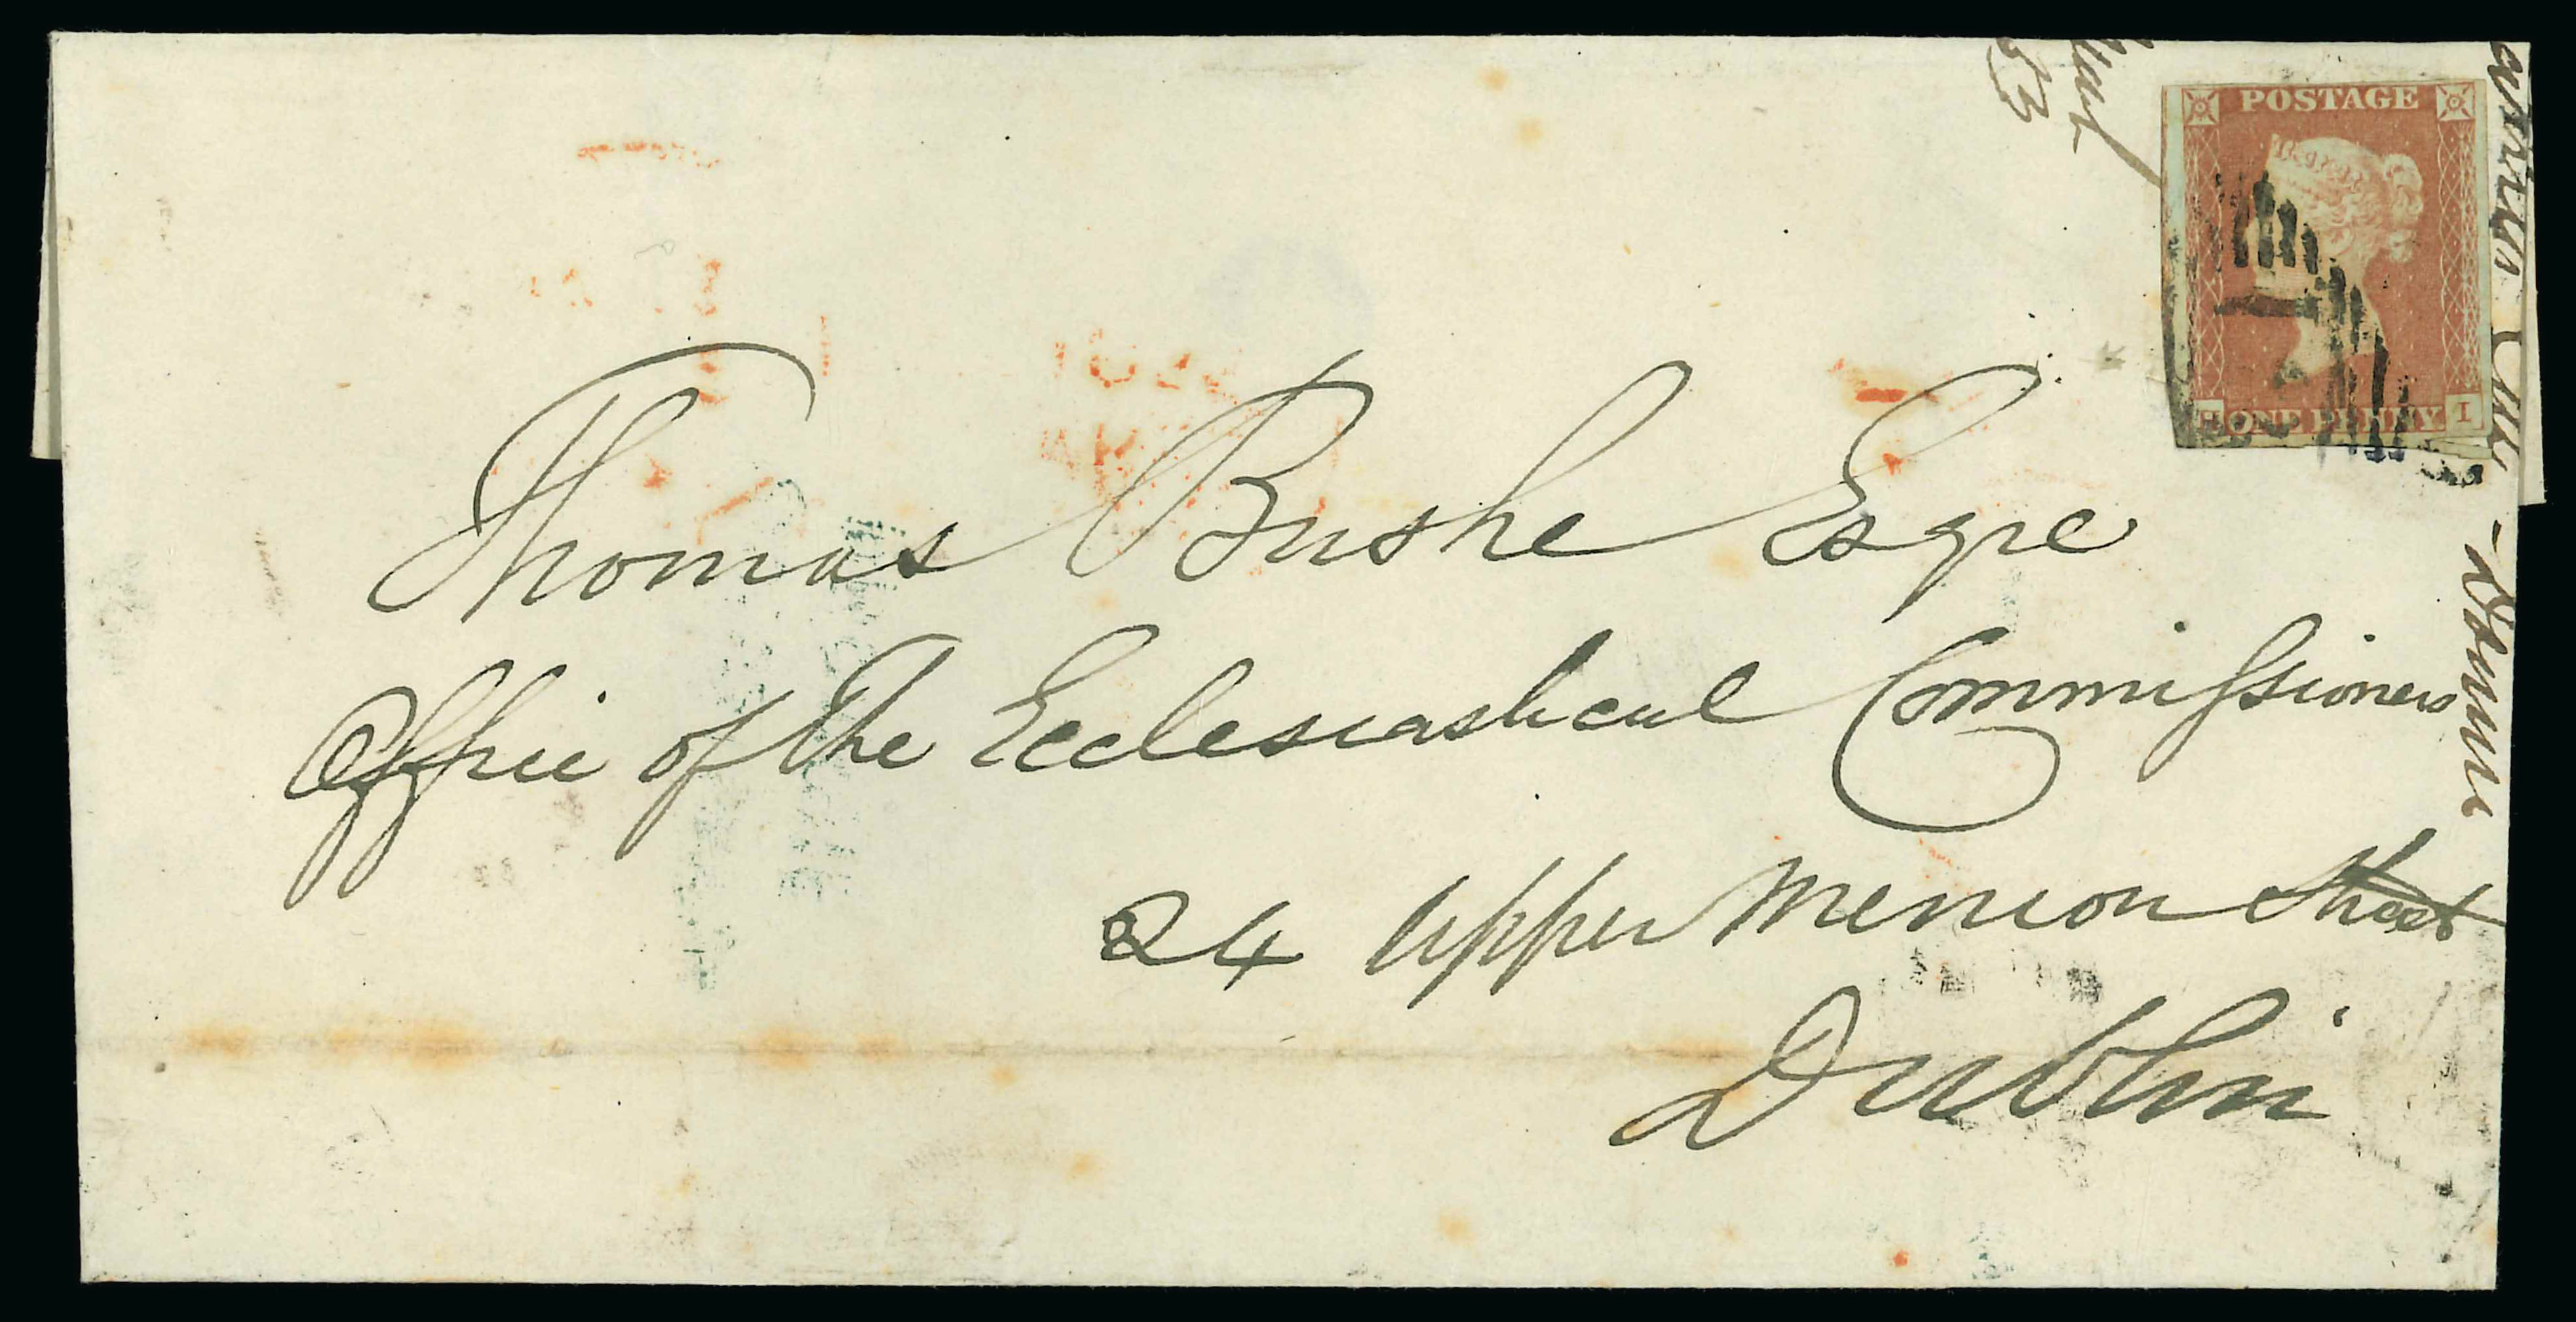 POSTAGE
ONE PENNY I
Thomas Bushe Esqre
Office of the Ecclesiastical Commissioners
24 Upper Merrion Street
Dublin
53